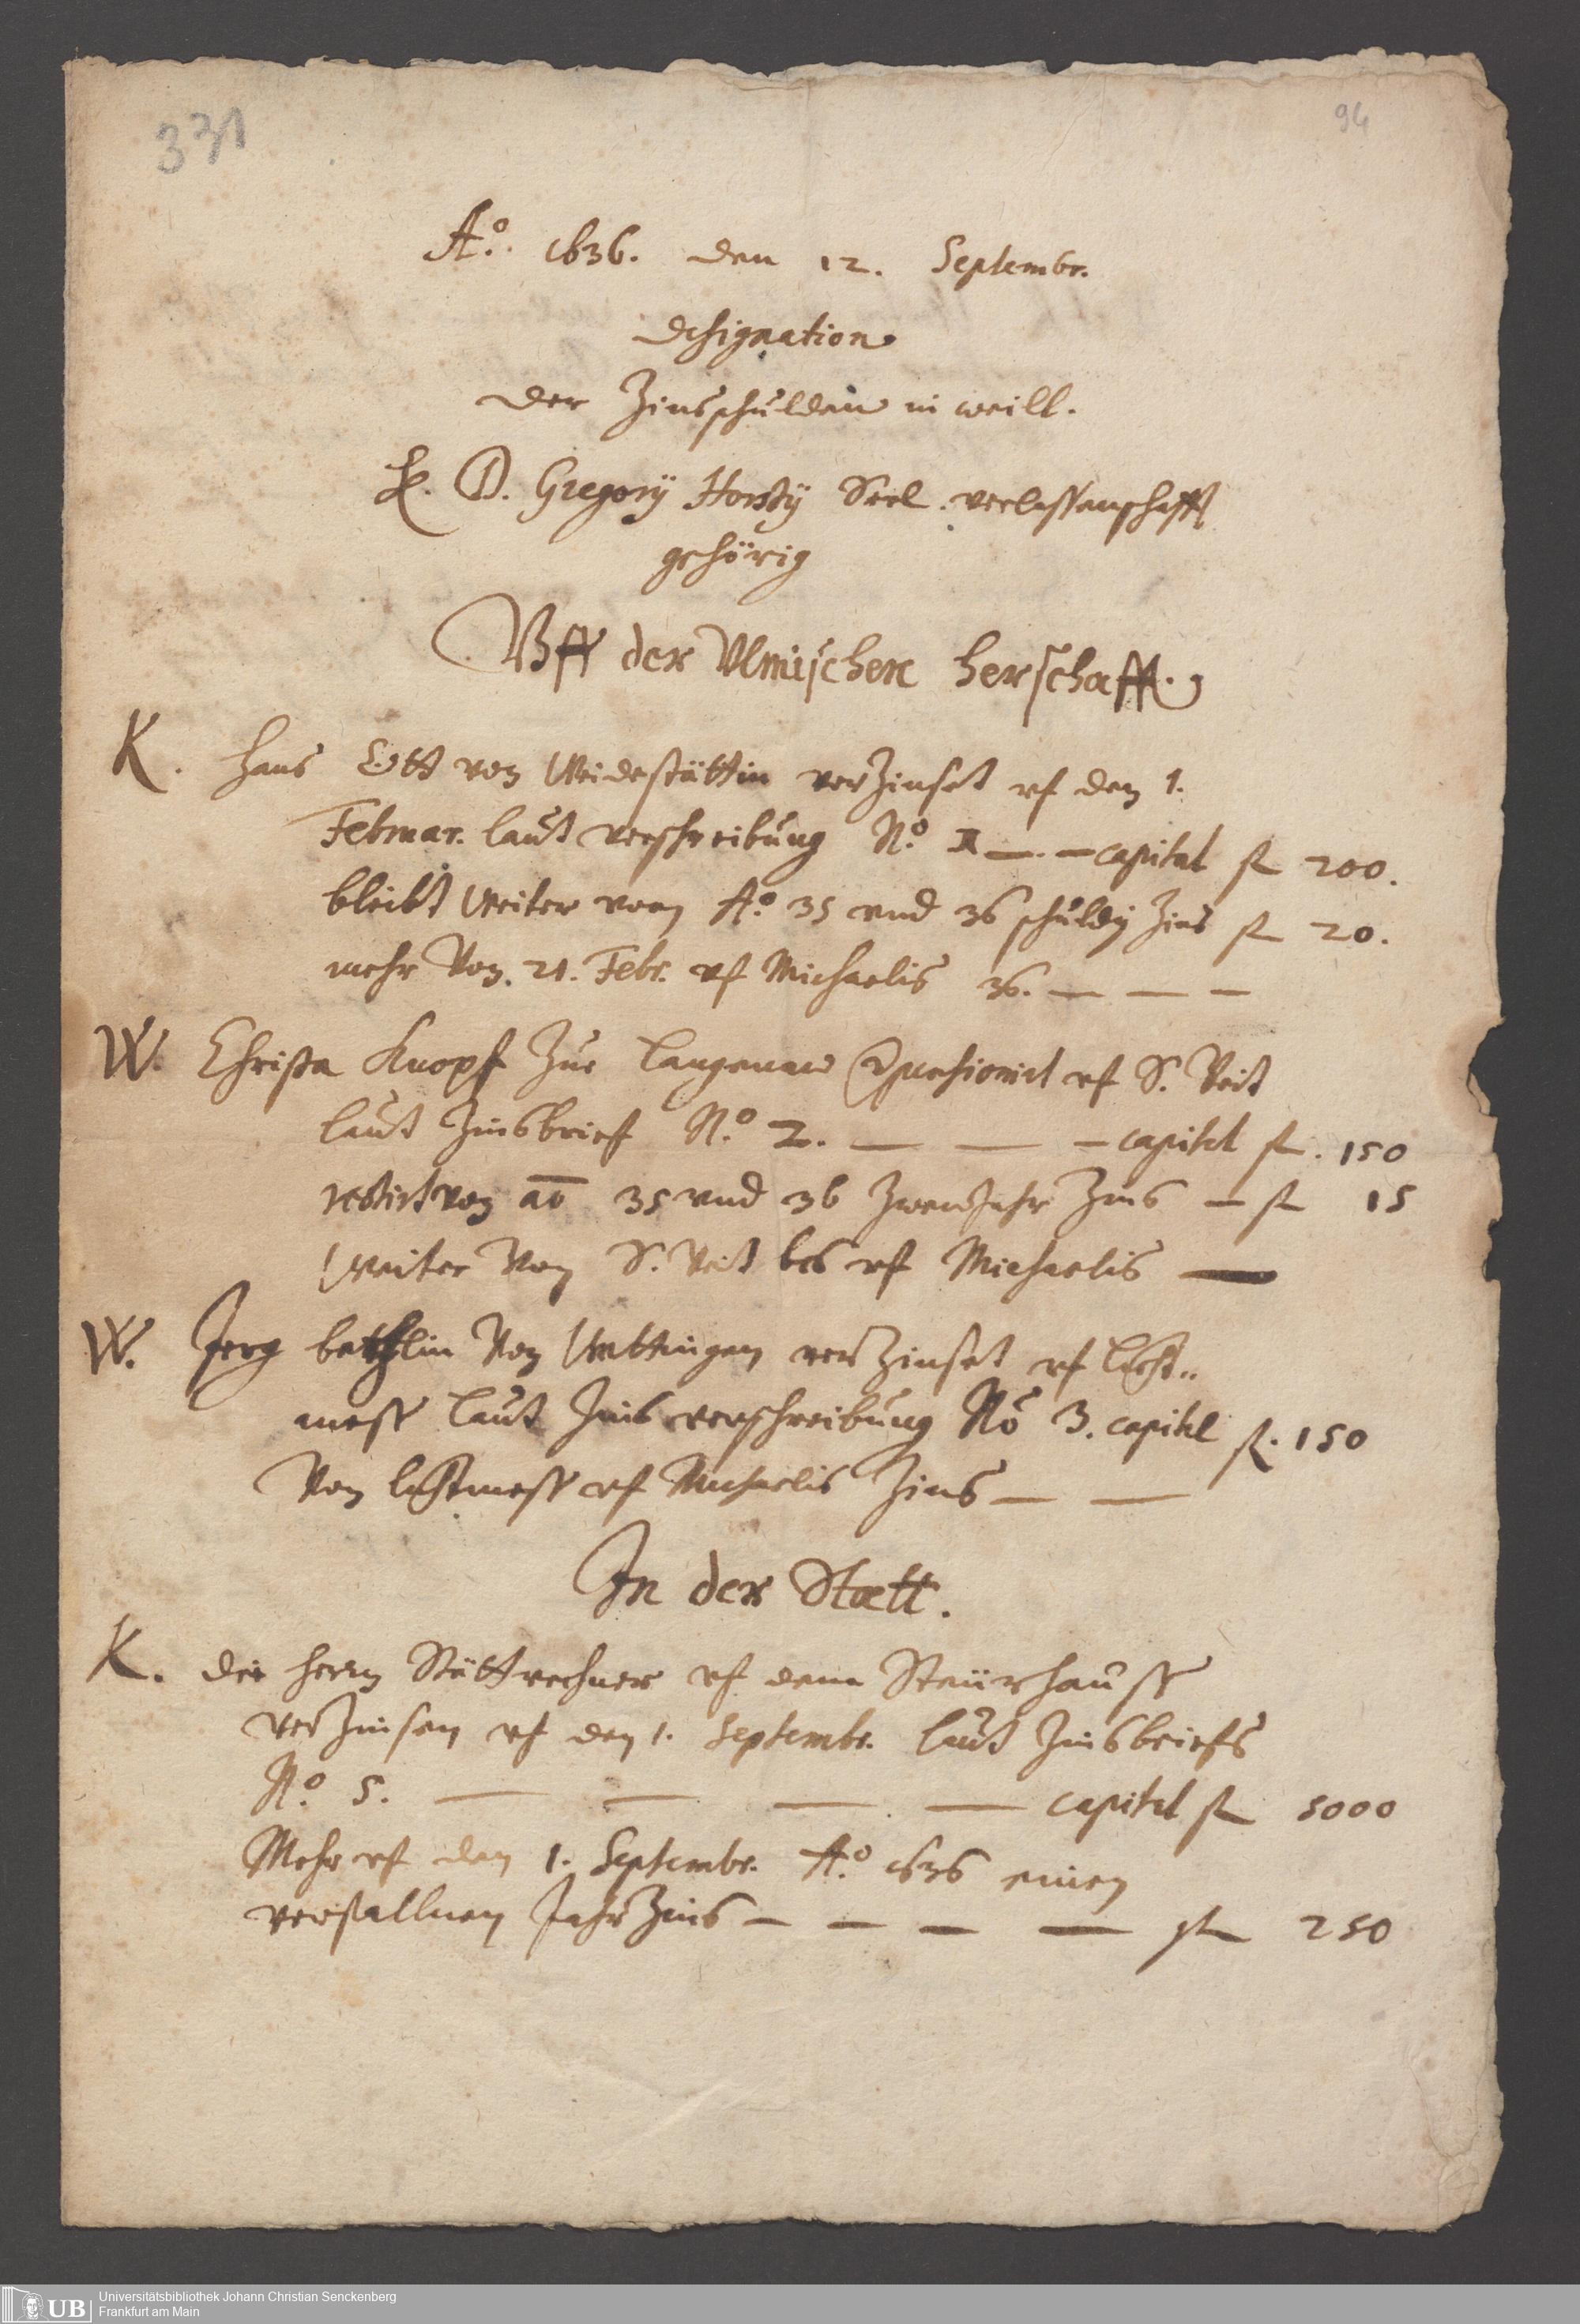 331
94
Aº. 1636. den 12. Septembr.
designation
der Zinsschulden in weill.
H. D. Gregorÿ Horstÿ Seel. verlassenschafft
gehörig
Vff der Vlmischen herschafft.
K. Hans Ott von Weidestättin verzinset vf den 1.
Februar. laut verschreibung Nº. 1 — — capital fl 200.
bleibt Weiter vom Aº. 35 vnd 36 schuldig Zins fl 20.
mehr Von. 21. Febr. vf Michaelis 36. — — —
W. Christa Knopf zue Langenaw vf S. Veit
laut Zinsbrief Nº. 2. — — — capital fl. 150
restirt von aō 35 vnd 36 zwen Jahr Zins — fl 15
Weiter Von S. Veit bis vf Michaelis —
W. Jerg Von verzinset vf liecht..
mess laut Zins verschreibung No 3. capital fl. 150
Von liechtmess vf Michaelis Zins — —
In der Statt.
K. die herrn Stättrechner vf dem Steürhauss
verzinsen vf den 1. Septembr. laut Zinsbriefs
Nº. 5. — — — — capital fl 5000
Mehr vf den 1. Septembr. Aº. 1636 einen
verfallnen Jahr Zins — — — — fl 250
UB Universitätsbibliothek Johann Christian Senckenberg
Frankfurt am Main